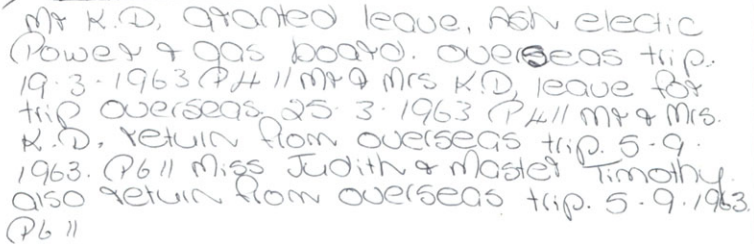 Mr K.D, granted leave, Ash electic
Power & gas board. overseas trip.
19.3.1963 (P4 || Mr & Mrs K.D, leave for
trip overseas. 25.3.1963 (P4 || Mr & Mrs.
K.D. return from overseas trip. 5.9.
1963. (P6 || Miss Judith & Master Timothy
also return from overseas trip. 5.9.1963.
(P6 ||